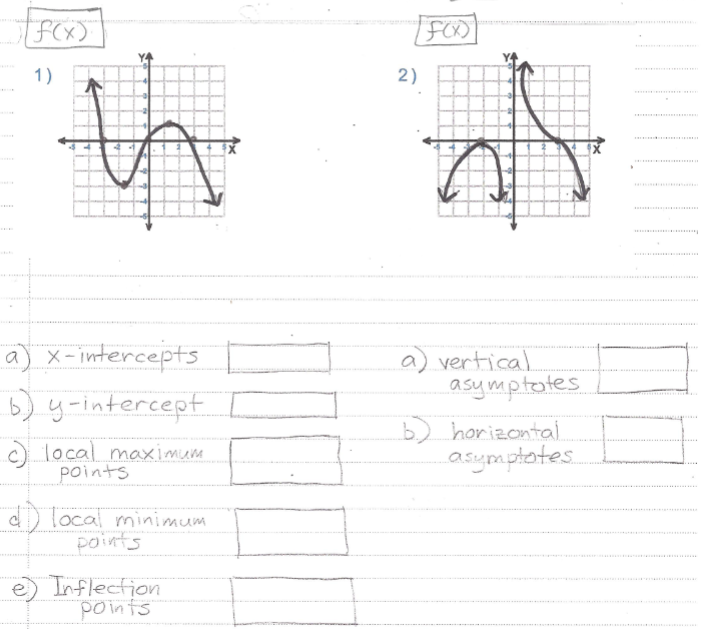 f(x)
f(x)
1)
2)
Y
X
Y
X
a) x-intercepts
b) y-intercept
c) local maximum
points
d) local minimum
points
e) Inflection
points
a) vertical
asymptotes
b) horizontal
asymptotes